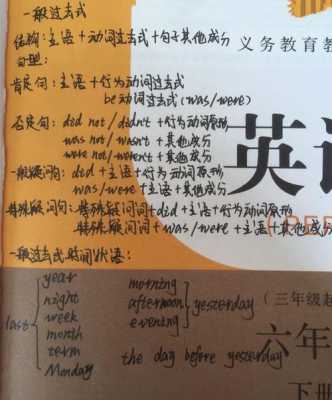 一般过去式
结构:主语+动词过去式+句子其他成分
义务教育教
句型:
肯定句:主语+行为动词过去式
be动词过去式(was/were)
否定句:did not/didn't+行为动词原形
was not/wasn't+其他成分
were not/weren't+其他成分
英语
一般疑问句:did+主语+行为动词原形
was/were+主语+其他成分
特殊疑问句:特殊疑问词+did+主语+行为动词原形
特殊疑问词+was/were+主语+其他成分
(PEP
一般过去式时间状语:
last { year
night
week
month
term
Monday
morning
afternoon } yesterday
evening
(三年级起
the day before yesterday
六年
下册